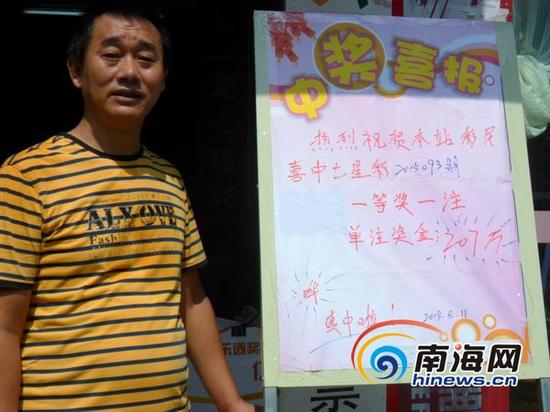 中奖喜报
热烈祝贺本站彩民
喜中七星彩2015093期
一等奖一注
单注奖金:207万
哗
真中啦!
2015.8.11
ALXOVE
Fash
乐透奖
示
南海网
hinews.cn